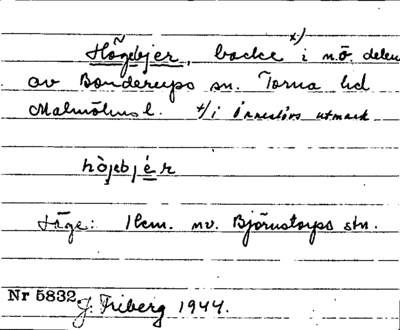 x)
Högebjer, backe i n.ö. delen
av Bonderups sn. Torna hd
Malmöhus l. x/ i Arrestörs utmark
höjebjér
Läge: 1 km. nv. Björnstorps stn.
Nr 5832. J. Friberg 1944.